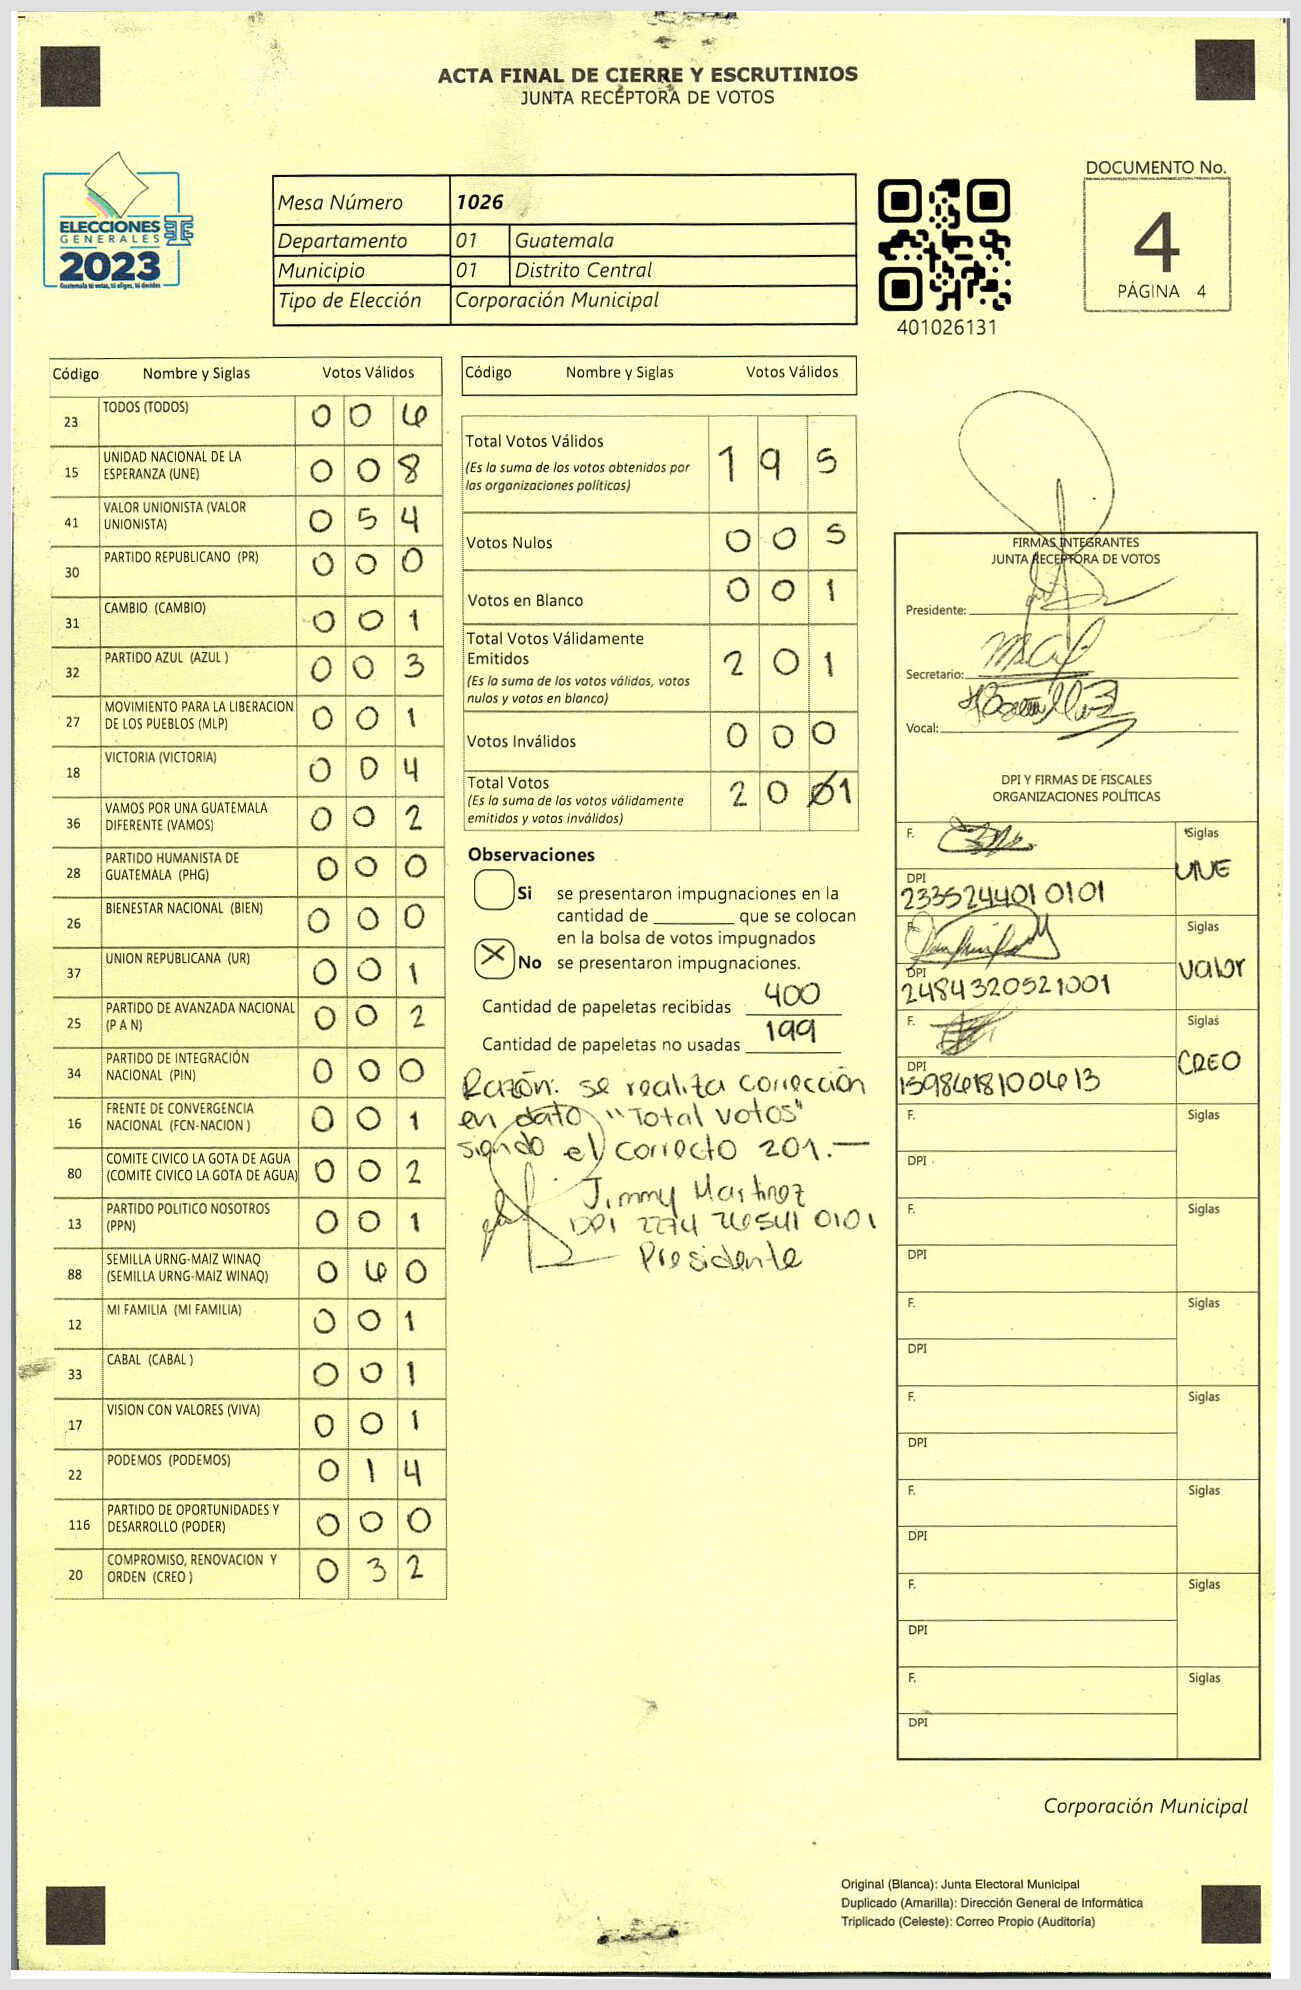 ACTA FINAL DE CIERRE Y ESCRUTINIOS
JUNTA RECEPTORA DE VOTOS
ELECCIONES
GENERALES
2023
Guatemala tú votas, tú eliges, tú decides
Mesa Número 1026
Departamento 01 Guatemala
Municipio 01 Distrito Central
Tipo de Elección Corporación Municipal
401026131
DOCUMENTO No.
4
PÁGINA 4
Código Nombre y Siglas Votos Válidos
23 TODOS (TODOS) 0 0 6
15 UNIDAD NACIONAL DE LA
ESPERANZA (UNE) 0 0 8
41 VALOR UNIONISTA (VALOR
UNIONISTA) 0 5 4
30 PARTIDO REPUBLICANO (PR) 0 0 0
31 CAMBIO (CAMBIO) 0 0 1
32 PARTIDO AZUL (AZUL ) 0 0 3
27 MOVIMIENTO PARA LA LIBERACION
DE LOS PUEBLOS (MLP) 0 0 1
18 VICTORIA (VICTORIA) 0 0 4
36 VAMOS POR UNA GUATEMALA
DIFERENTE (VAMOS) 0 0 2
28 PARTIDO HUMANISTA DE
GUATEMALA (PHG) 0 0 0
26 BIENESTAR NACIONAL (BIEN) 0 0 0
37 UNION REPUBLICANA (UR) 0 0 1
25 PARTIDO DE AVANZADA NACIONAL
(P A N) 0 0 2
34 PARTIDO DE INTEGRACIÓN
NACIONAL (PIN) 0 0 0
16 FRENTE DE CONVERGENCIA
NACIONAL (FCN-NACION ) 0 0 1
80 COMITE CIVICO LA GOTA DE AGUA
(COMITE CIVICO LA GOTA DE AGUA) 0 0 2
13 PARTIDO POLITICO NOSOTROS
(PPN) 0 0 1
88 SEMILLA URNG-MAIZ WINAQ
(SEMILLA URNG-MAIZ WINAQ) 0 6 0
12 MI FAMILIA (MI FAMILIA) 0 0 1
33 CABAL (CABAL ) 0 0 1
17 VISION CON VALORES (VIVA) 0 0 1
22 PODEMOS (PODEMOS) 0 1 4
116 PARTIDO DE OPORTUNIDADES Y
DESARROLLO (PODER) 0 0 0
20 COMPROMISO, RENOVACION Y
ORDEN (CREO ) 0 3 2
Código Nombre y Siglas Votos Válidos
Total Votos Válidos 1 9 5
(Es la suma de los votos obtenidos por
las organizaciones políticas)
Votos Nulos 0 0 5
Votos en Blanco 0 0 1
Total Votos Válidamente
Emitidos 2 0 1
(Es la suma de los votos válidos, votos
nulos y votos en blanco)
Votos Inválidos 0 0 0
Total Votos 2 0 1
(Es la suma de los votos válidamente
emitidos y votos inválidos)
Observaciones
Si se presentaron impugnaciones en la
cantidad de ________ que se colocan
en la bolsa de votos impugnados
X No se presentaron impugnaciones.
Cantidad de papeletas recibidas 400
Cantidad de papeletas no usadas 199
Razón: se realiza corrección
en dato "Total votos"
siendo el correcto 201.—
Jimmy Martinez
DPI 2274 26541 0101
Presidente
FIRMAS INTEGRANTES
JUNTA RECEPTORA DE VOTOS
Presidente:
Secretario:
Vocal:
DPI Y FIRMAS DE FISCALES
ORGANIZACIONES POLÍTICAS
F. Siglas
UNE
DPI
233524401 0101
F. Siglas
Valor
DPI
2484320521001
F. Siglas
CREO
DPI
1598618100613
F. Siglas
DPI
F. Siglas
DPI
F. Siglas
DPI
F. Siglas
DPI
F. Siglas
DPI
F. Siglas
DPI
F. Siglas
DPI
Corporación Municipal
Original (Blanca): Junta Electoral Municipal
Duplicado (Amarilla): Dirección General de Informática
Triplicado (Celeste): Correo Propio (Auditoría)